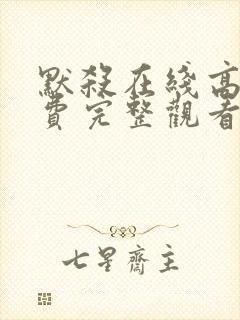 默殺在线高
費完整觀看
七星齋主